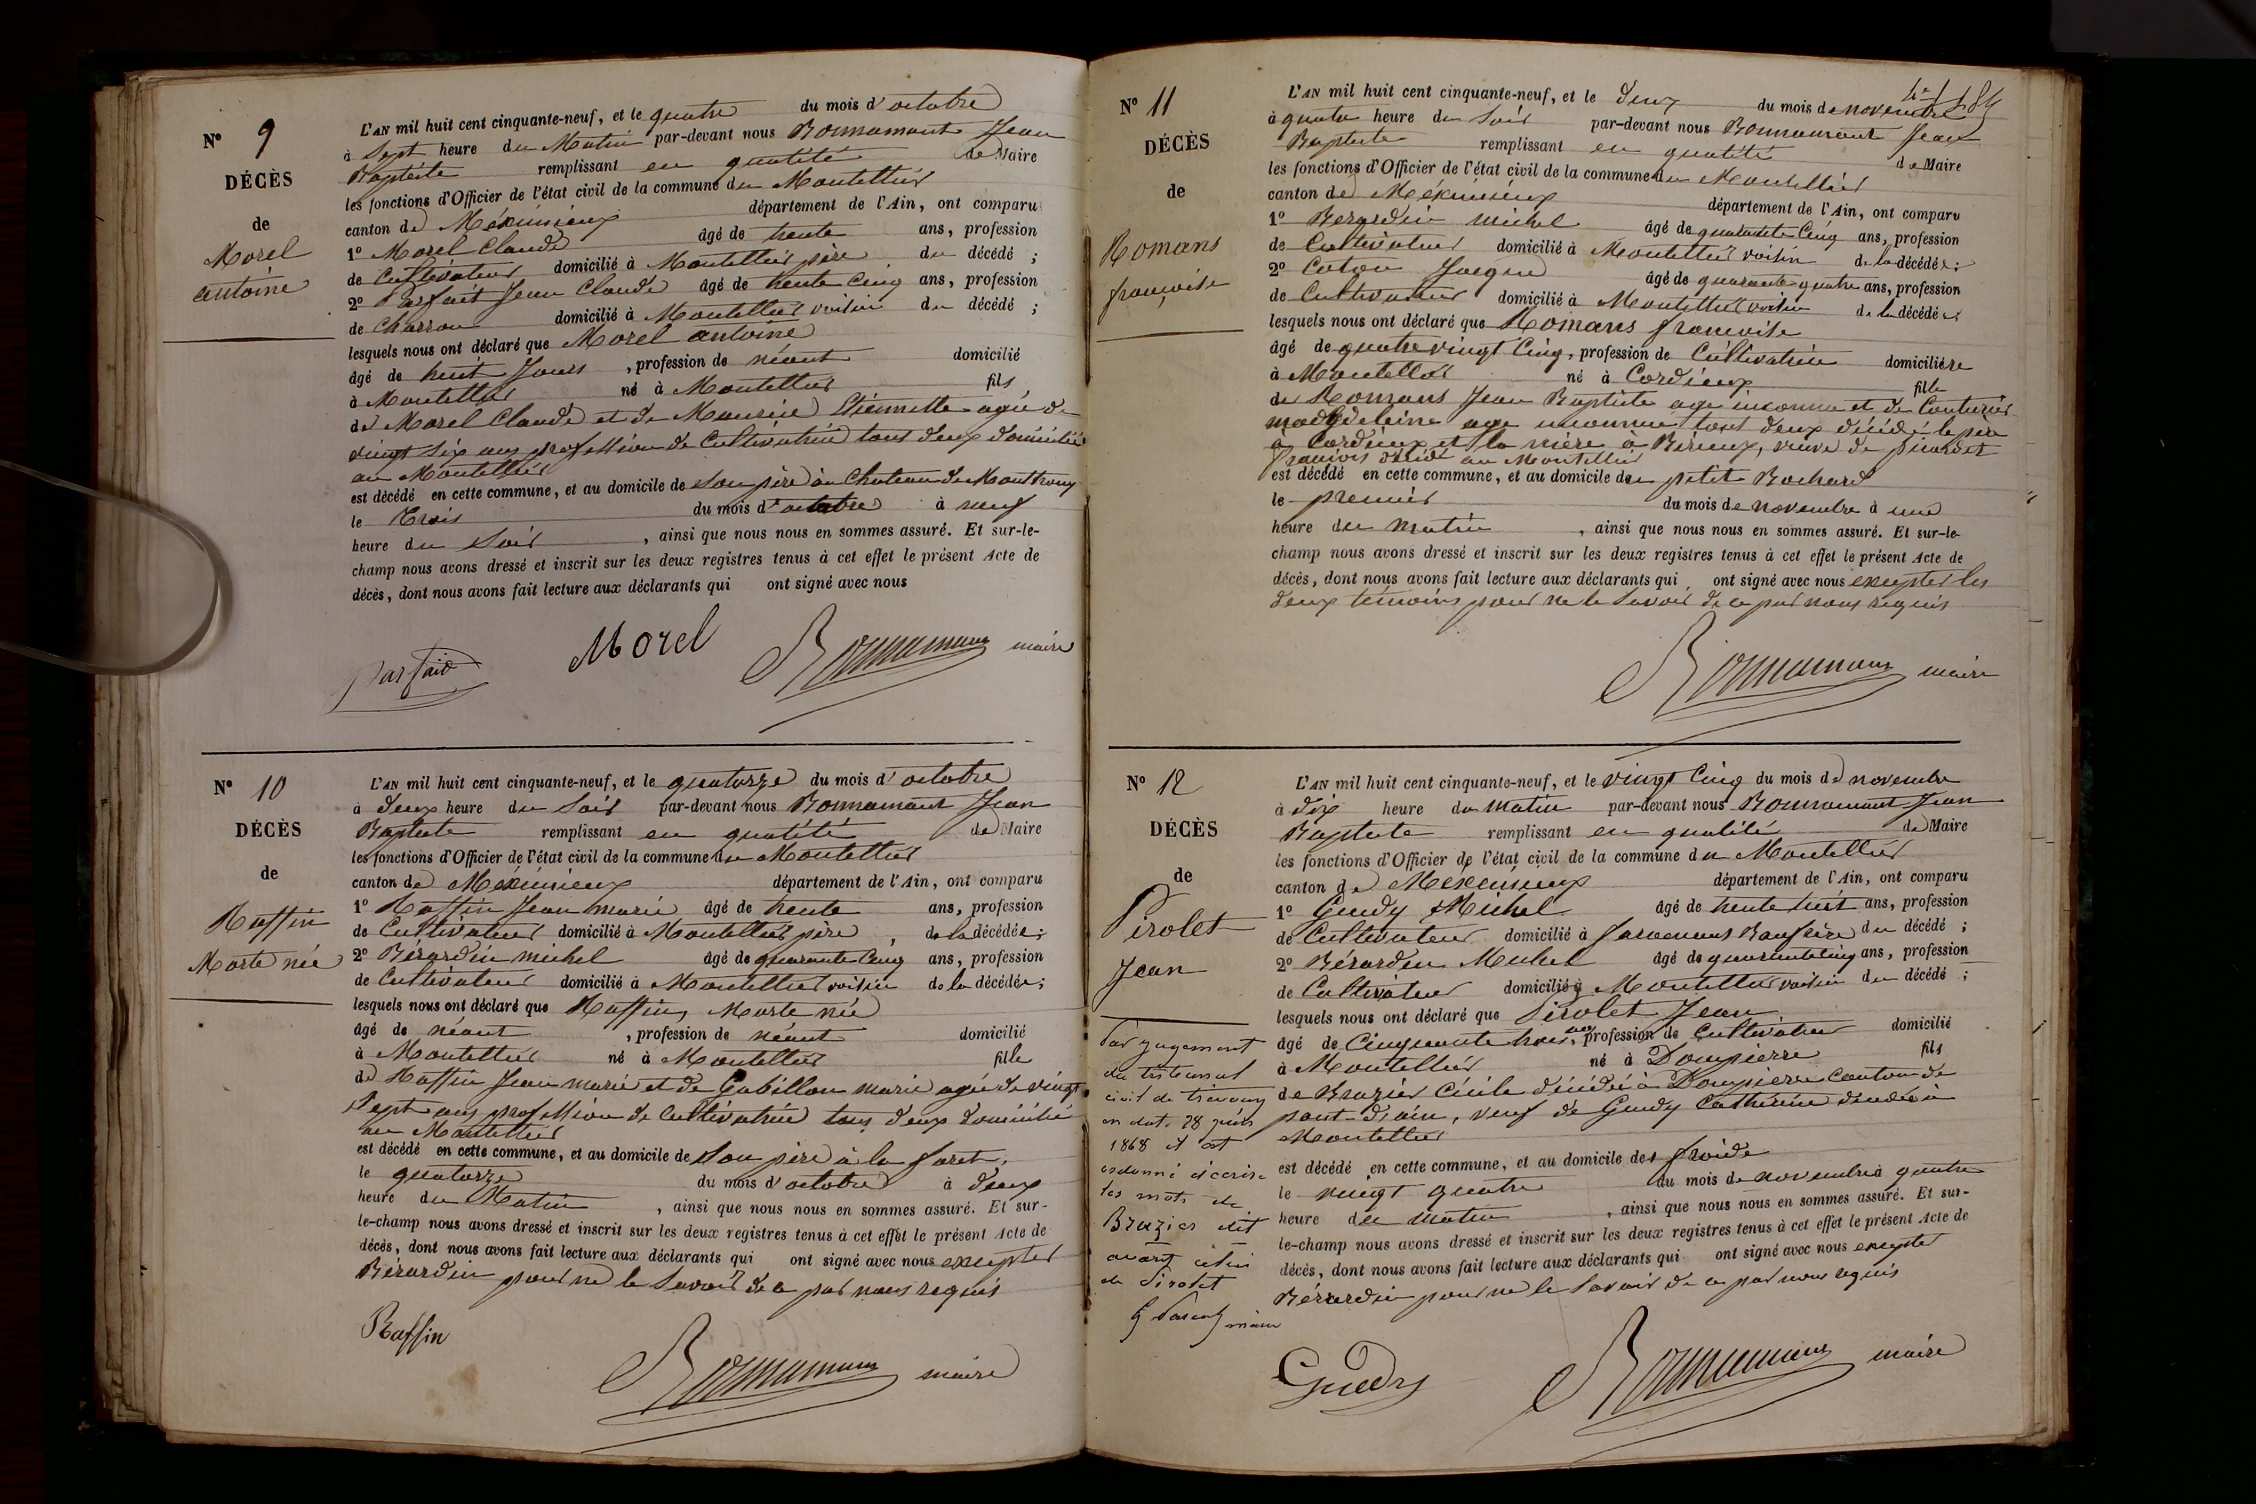 N° 9
DÉCÈS
de
Morel
antoine
L'AN mil huit cent cinquante-neuf, et le quatre du mois d'octobre
à sept heure du Matin par-devant nous Bonnamant Jean
Baptiste remplissant en qualité de Maire
les fonctions d'Officier de l'état civil de la commune du Montellier
canton de Méximieux département de l'Ain, ont comparu
1° Morel Claude âgé de trente ans, profession
de Cultivateur domicilié à Montellier père du décédé ;
2° Parfait Jean Claude âgé de trente Cinq ans, profession
de Charron domicilié à Montellier voisin du décédé ;
lesquels nous ont déclaré que Morel antoine
âgé de huit Jours , profession de néant domicilié
à Montellier né à Montellier fils
de Morel Claude et de Etiennette agée de
vingt six ans profession de Cultivatrice tout deux domicilié
au Montellier
est décédé en cette commune, et au domicile de son père au Chateau de
le Trois du mois d'octobre à neuf
heure du soir , ainsi que nous nous en sommes assuré. Et sur-le-
champ nous avons dressé et inscrit sur les deux registres tenus à cet effet le présent Acte de
décès, dont nous avons fait lecture aux déclarants qui ont signé avec nous
parfait Morel Bonnamant maire
N° 10
DÉCÈS
de
Raffin
Morte née
L'AN mil huit cent cinquante-neuf, et le quatorze du mois d'octobre
à deux heure du Soir par-devant nous Bonnamant Jean
Baptiste remplissant en qualité de Maire
les fonctions d'Officier de l'état civil de la commune du Montellier
canton de Méximieux département de l'Ain, ont comparu
1° Raffin Jean marie âgé de trente ans, profession
de Cultivateur domicilié à Montellier père , de la décédée ;
2° Bérardin michel âgé de quarante Cinq ans, profession
de Cultivateur domicilié à Montellier voisin de la décédée ;
lesquels nous ont déclaré que Raffin, Morte née
âgé de néant , profession de néant domicilié
à Montellier né à Montellier fille
de Raffin Jean marie et de Gabillon marie agée de vingt
Sept ans profession de Cultivatrice tous deux domicilié
au Montellier
est décédé en cette commune, et au domicile de Son père à la foret,
le quatorze du mois d'octobre à deux
heure du Matin , ainsi que nous nous en sommes assuré. Et sur-
le-champ nous avons dressé et inscrit sur les deux registres tenus à cet effet le présent Acte de
décès, dont nous avons fait lecture aux déclarants qui ont signé avec nous excepter
Bérardin pour ne le Savoir de ce par nous requis
Raffin Bonnamant maire
N° 11
DÉCÈS
de
Romans
françoise
L'AN mil huit cent cinquante-neuf, et le deux du mois de novembre
à quatre heure du Soir par-devant nous Bonnamant Jean
Baptiste remplissant en qualité de Maire
les fonctions d'Officier de l'état civil de la commune du Montellier
canton de Méximieux département de l'Ain, ont comparu
1° Berardin michel âgé de quarante Cinq ans, profession
de Cultivateur domicilié à Montellier voisin de la décédée ;
2° Coton Jacque âgé de quarante quatre ans, profession
de Cultivateur domicilié à Montellier voisin de la décédée ;
lesquels nous ont déclaré que Romans françoise
âgé de quatre vingt Cinq, profession de Cultivatrice domiciliére
à Montellier né à Cordieux fille
de Romans Jean Baptiste age inconnu et de Couturier
magdeleine age inconnue tout deux décédé le père
à Cordieux et la mère à Birieux, veuve de
François décédé au Montellier
est décédé en cette commune, et au domicile du petit Bochard
le premier du mois de novembre à une
heure du Matin , ainsi que nous nous en sommes assuré. Et sur-le-
champ nous avons dressé et inscrit sur les deux registres tenus à cet effet le présent Acte de
décès, dont nous avons fait lecture aux déclarants qui ont signé avec nous excepter les
deux témoins pour ne le Savoir de ce par nous requis
Bonnamant maire
N° 12
DÉCÈS
de
Pirolet
Jean
Par jugement
du tribunal
civil de trévoux
en date 28
1868 il est
ordonné d'écrire
les mots de
Brazier dit
avant celui
de Pirolet
maire
L'AN mil huit cent cinquante-neuf, et le vingt Cinq du mois de novembre
à dix heure du matin par-devant nous Bonnamant Jean
Baptiste remplissant en qualité de Maire
les fonctions d'Officier de l'état civil de la commune du Montellier
canton de Méximieux département de l'Ain, ont comparu
1° Guedy Michel âgé de trente huit ans, profession
de Cultivateur domicilié à Baufrère du décédé ;
2° Bérardin Michel âgé de quarante Cinq ans, profession
de Cultivateur domicilié à Montellier voisin du décédé ;
lesquels nous ont déclaré que Pirolet Jean
âgé de Cinquante trois ans, profession de Cultivateur domicilié
à Montellier né à Dompierre fils
de Brazier Cécile décédé à Dompierre Canton de
pont-d'ain, veuf de Guedy Catherine décédée à
Montellier
est décédé en cette commune, et au domicile de froide
le vingt quatre du mois de novembre à quatre
heure du matin , ainsi que nous nous en sommes assuré. Et sur-
le-champ nous avons dressé et inscrit sur les deux registres tenus à cet effet le présent Acte de
décès, dont nous avons fait lecture aux déclarants qui ont signé avec nous excepter
Bérardin pour ne le Savoir de ce par nous requis
Guedy Bonnamant maire